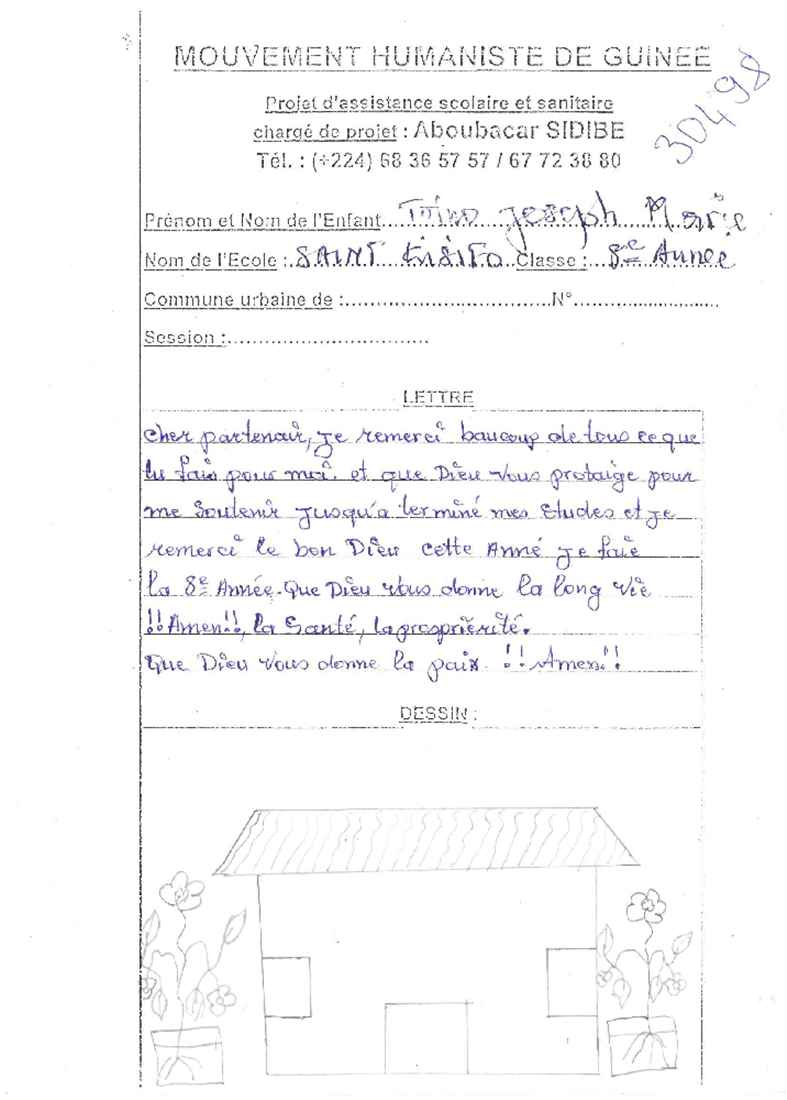 MOUVEMENT HUMANISTE DE GUINEE
30498
Projet d'assistance scolaire et sanitaire
chargé de projet : Aboubacar SIDIBE
Tél. : (+224) 68 36 57 57 / 67 72 38 80
Prénom et Nom de l'Enfant Joseph Marie
Nom de l'Ecole : SAINT Classe : 8e Année
Commune urbaine de : N°
Session :
LETTRE
cher partenair, je remerci baucoup de tous ce que
tu fais pour moi. et que Dieu vous protaige pour
me soutenir jusqu'a terminé mes études et je
remerci le bon Dieu cette Anné je faie
la 8e Année. Que Dieu vous donne la long vie
!! Amen!!, la Santé, la prospriérité.
Que Dieu vous donne la paix. !! Amen!!
DESSIN :